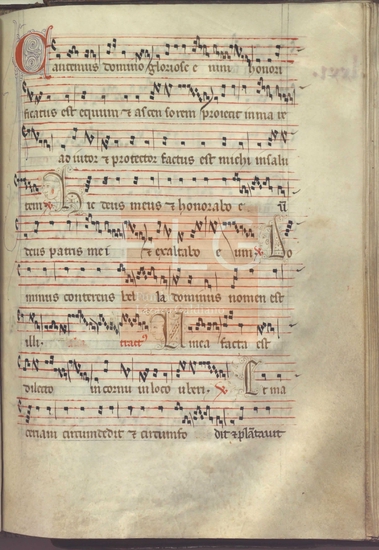 Cantemus domino gloriose e nim honori
ficatus est equum & ascensorem proiecit in ma re
adiutor & protector factus est michi in salu
tem Hic deus meus & honorabo e
deus patris mei & exaltabo e um Do
minus conterens bel la dominus nomen est
illi. tract Vinea facta est
dilecto in cornu in loco uberi. Et ma
ceriam circumdedit & circumfo dit & plantavit